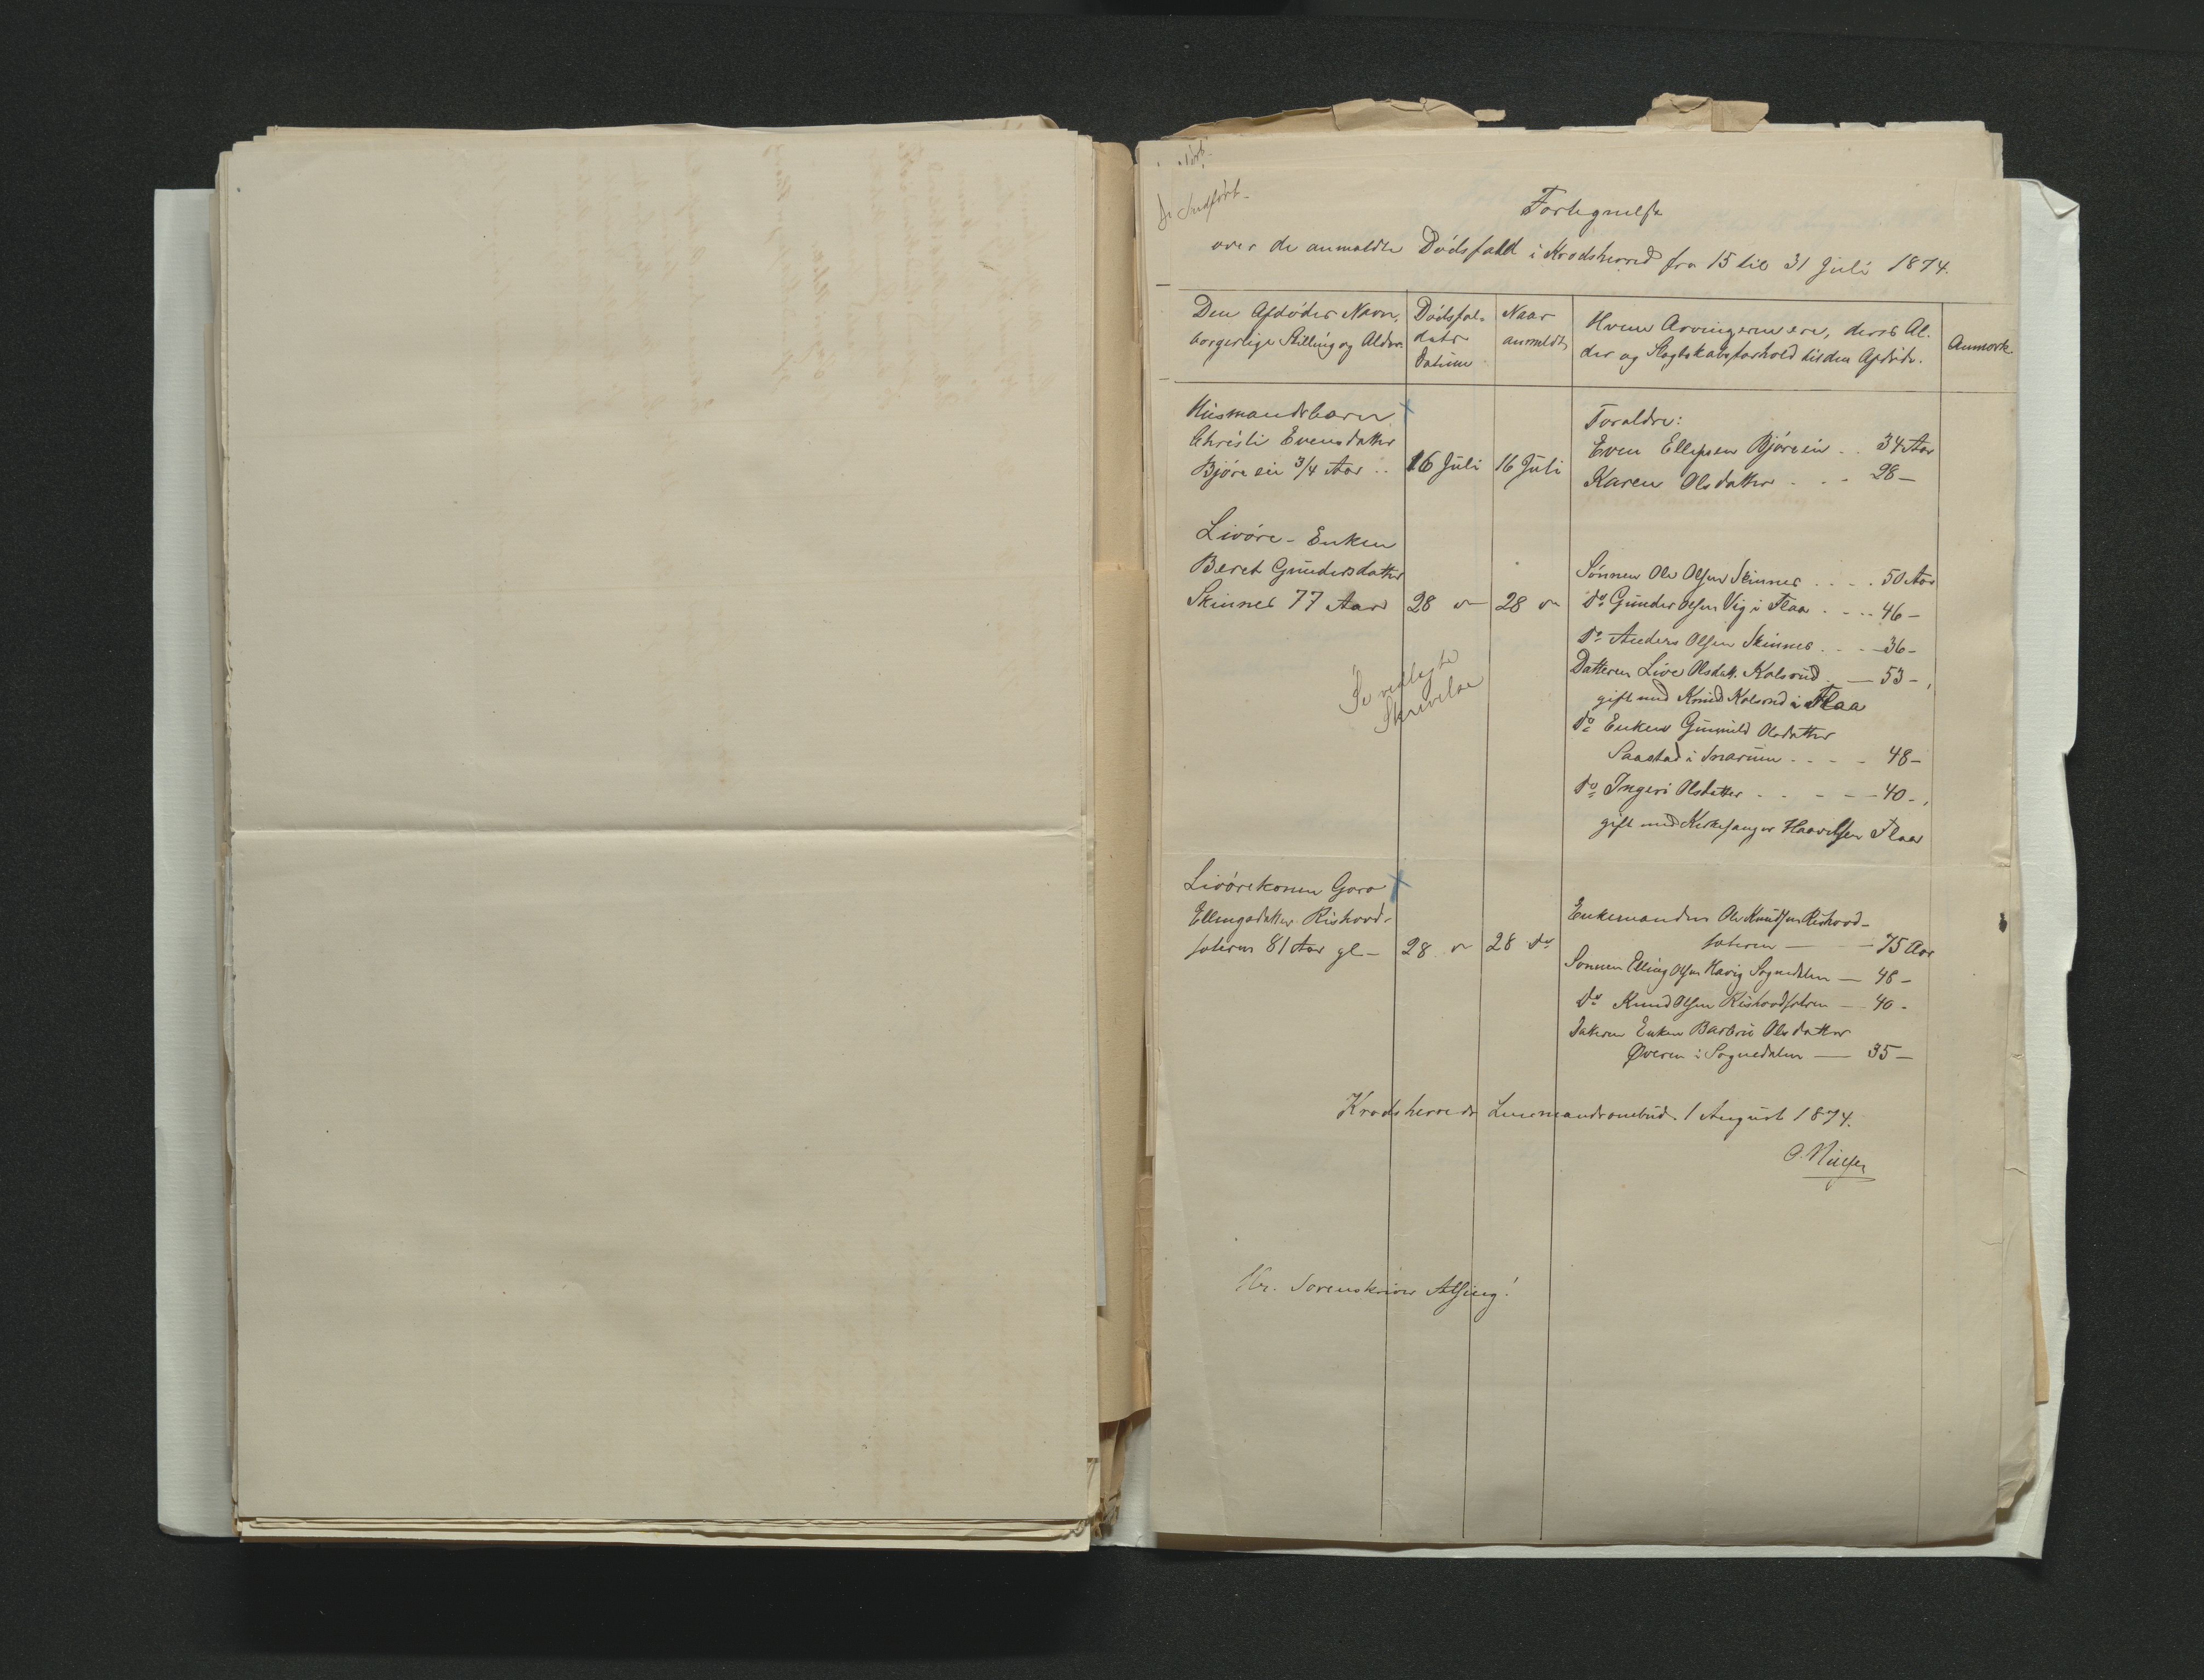 Indført.
Fortegnelse
over de anmeldte Dødsfald i Krødsherred fra 15 til 31 Juli 1874.
Den Afdødes Navn,
borgerlige Stilling og Alder.
Dødsfal-
dets
Datum
Naar
anmeldt
Hvem Arvingerne ere, deres Al-
der og Slægtskabsforhold til den Afdøde.
Anmærk.
Husmandsbarn
Christi Evensdatter
Bjøreeie 3/4 Aar ..
16 Juli
16 Juli
Forældre:
Even Ellefsen Bjøreeie .. 34 Aar
Karen Olsdatter . . . 28 —
Livøre-Enken
Beret Gundersdatter
Skinnes 77 Aar
28 "
28 "
Sønnen Ole Olsen Skinnes . . . . 50 Aar
Do Gunder Olsen Vig i Flaa . . . . 46 —
Do Anders Olsen Skinnes . . . — 36 —
Datteren Live Olsdatt. Kolsrud — 53 — ,
gift med Knud Kolsrud i Flaa
Do Enken Gunnild Olsdatter
Saastad i Snarum . . . . 48 —
Do Ingeri Olsdatter . . . — 40 — ,
gift med Kirkesanger Haavelsen Flaa
Se vedlagte
Skrivelse
Livørekonen Goro
Ellingsdatter Rishovd-
sæteren 81 Aar gl —
28 "
28 do
Enkemanden Ole Knudsen Rishovd-
sæteren — — 75 Aar
Sønnen Elling Olsen Havig Sognedalen — 48 —
Do Knud Olsen Rishovdsæteren — 40 —
Datteren Enken Barbro Olsdatter
Øveren i Sognedalen — 35 —
Krødsherreds Lensmandsombud 1 August 1874.
O. Nilsen
Hr. Sorenskriver Alsing!